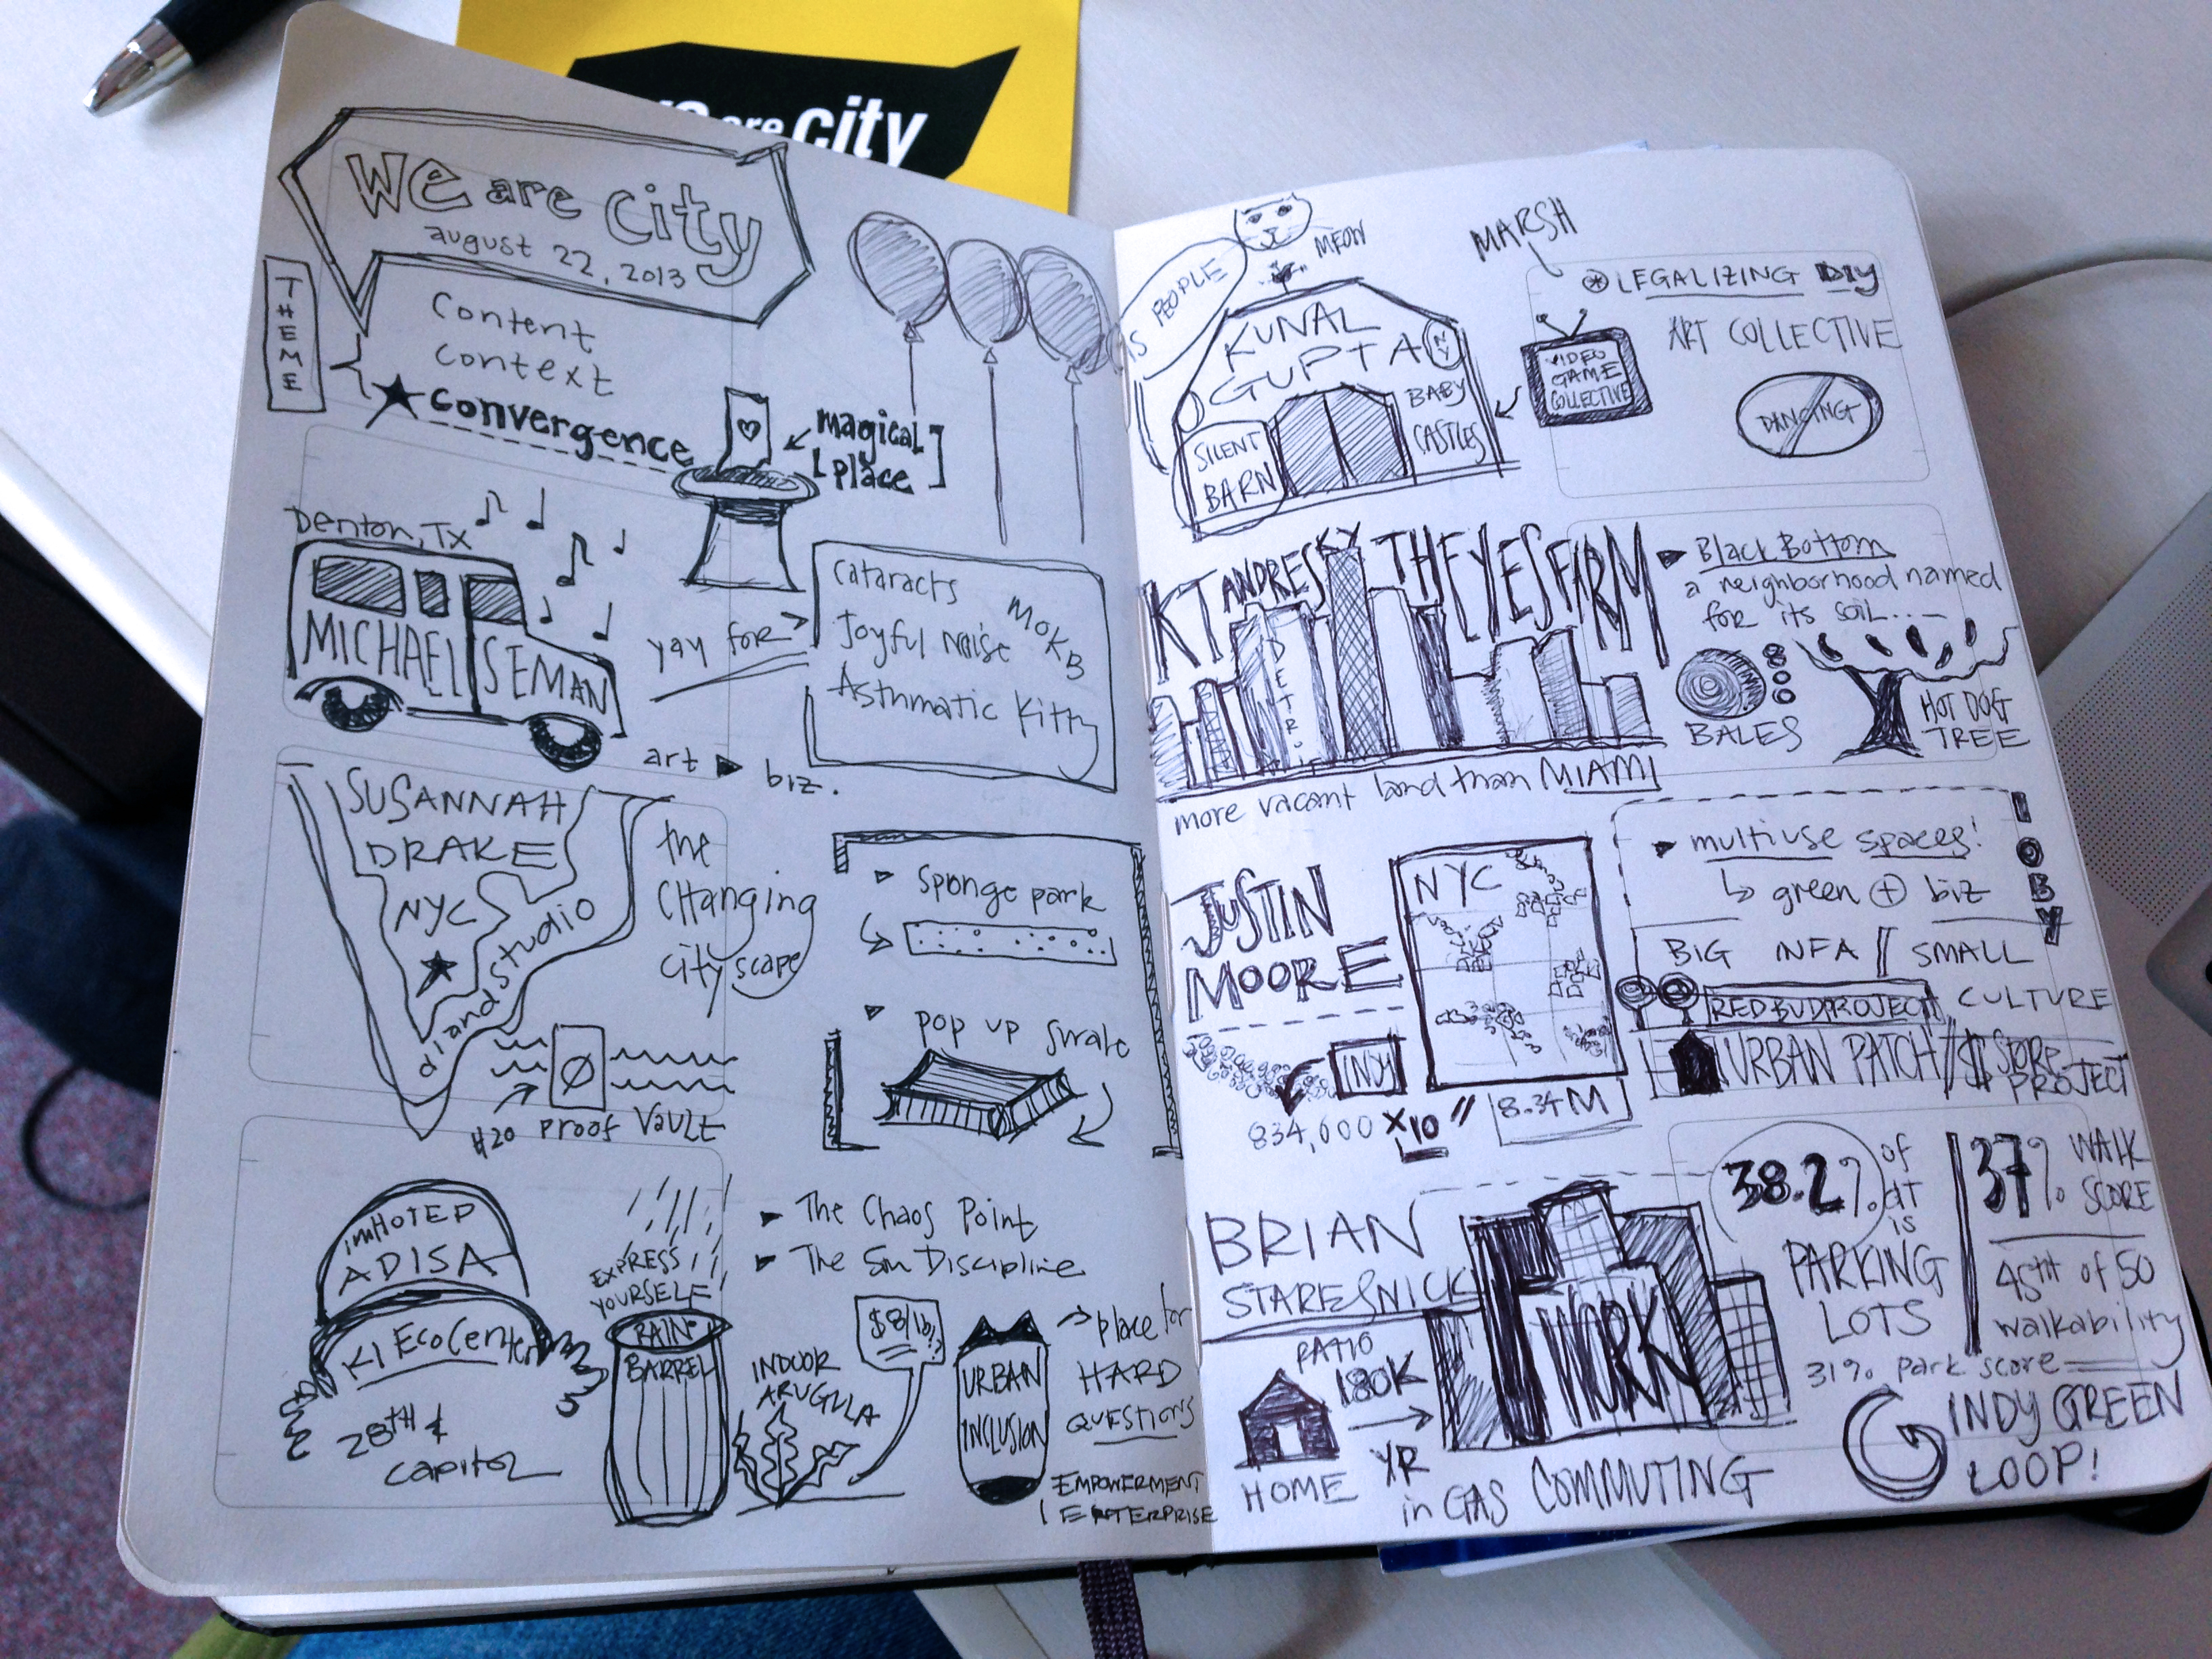 are city
We are city
august 22, 2013
THEME
Content
context
convergence
magical
place
Denton, TX
MICHAEL SEMAN
yay for
Cataracts
Joyful Noise
MOKB
Asthmatic Kitty
art ▶ biz.
SUSANNAH
DRAKE
NYC
dlandstudio
the
CHanging
city scape
H20 proof VAULT
sponge park
pop up
IMHOTEP
ADISA
KI EcoCenter
28TH &
capitol
EXPRESS
YOURSELF
RAIN
BARREL
The Chaos Point
The 5th Discipline
INDOOR
ARUGULA
$8/lb
URBAN
INCLUSION
place for
HARD
QUESTIONS
EMPOWERMENT
ENTERPRISE
MEOW
PEOPLE
KUNAL
GUPTA
NY
SILENT
BARN
BABY
CASTLES
MARSH
VIDEO
GAME
COLLECTIVE
LEGALIZING DIY
ART COLLECTIVE
DANCING
KT ANDRESKY THE YES FARM
DETROIT
more vacant land than MIAMI
Black Bottom
a neighborhood named
for its soil....
800
BALES
HOT DOG
TREE
JUSTIN
MOORE
NYC
INDY
834,000 x10
8.34M
IOBY
multiuse spaces!
green + biz
BIG INFA // SMALL
REDBUD PROJECT CULTURE
URBAN PATCH // $ STORE
PROJECT
BRIAN
STARESNICK
RATIO
180K
YR
HOME
WORK
in GAS COMMUTING
38.2% of
DT
is
PARKING
LOTS
37% WALK
SCORE
45TH of 50
walkability
31% park score
INDY GREEN
LOOP!